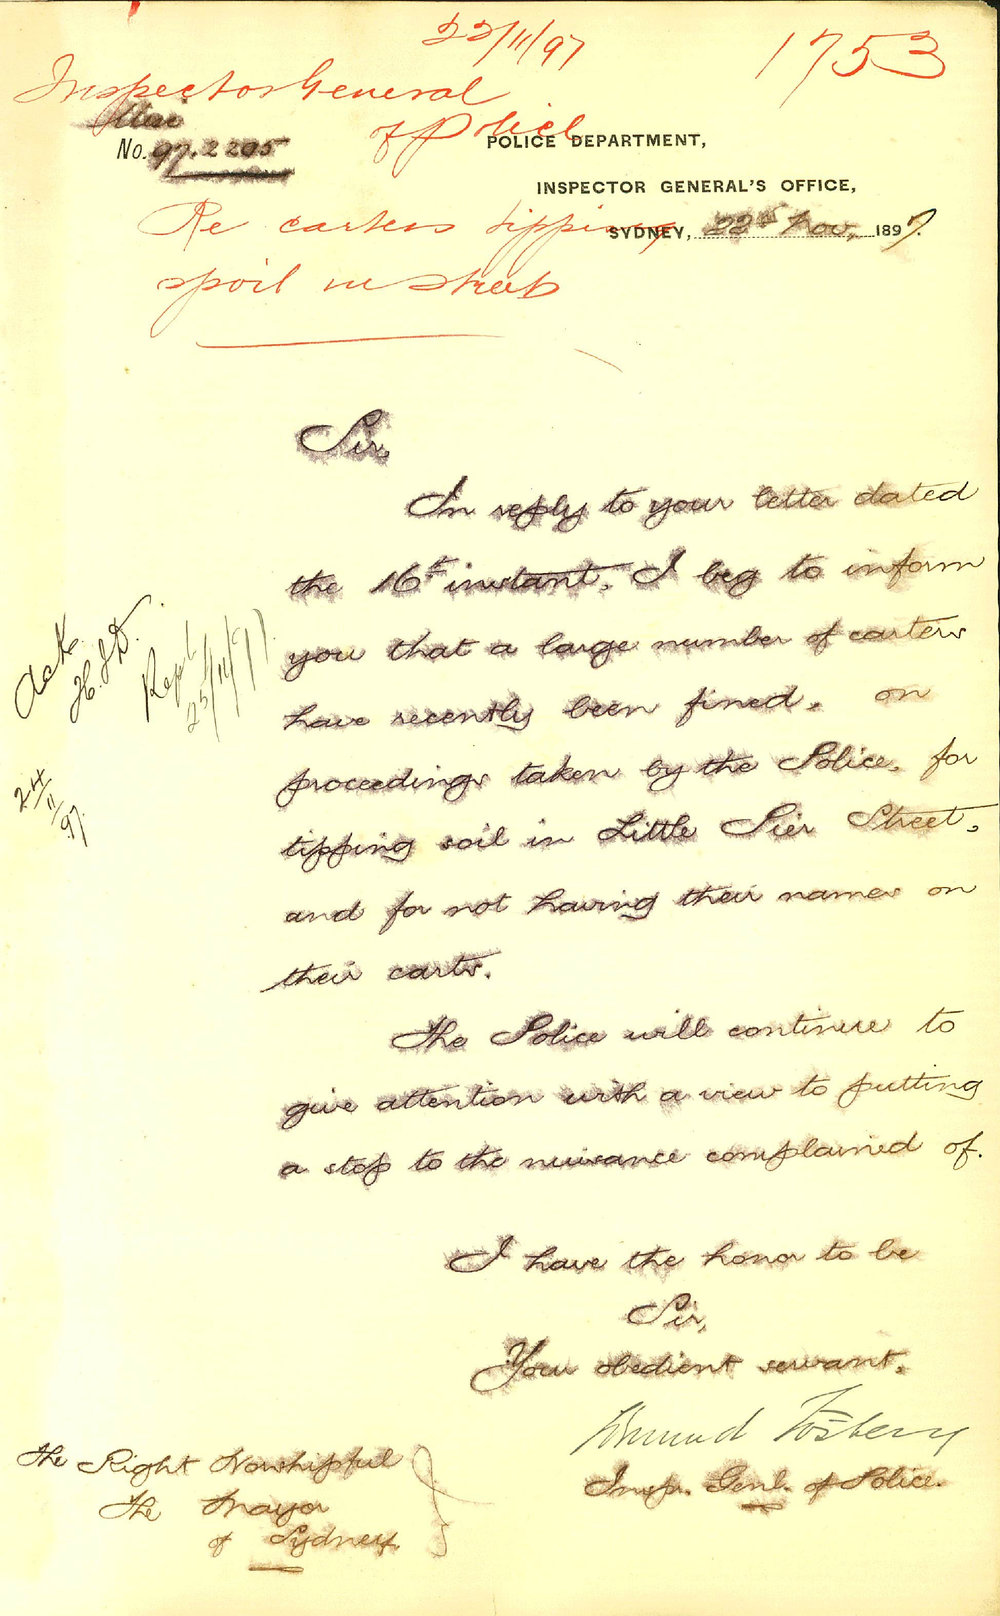 22/11/97
1753
Inspector General
of Police
No. 97.2205
POLICE DEPARTMENT,
INSPECTOR GENERAL'S OFFICE,
SYDNEY, 22nd Nov. 1897.
Re carters tipping
spoil in streets
Sir,
In reply to your letter dated
the 16th instant, I beg to inform
you that a large number of carters
have recently been fined, on
proceedings taken by the Police, for
tipping soil in Little Pier Street,
and for not having their names on
their carts.
The Police will continue to
give attention with a view to putting
a stop to the nuisance complained of.
Ack.
24/11/97.
25/11/97
I have the honor to be
Sir,
Your obedient servant,
Edmund Fosbery
Insp. Genl. of Police.
The Right Worshipful
The Mayor
of Sydney.